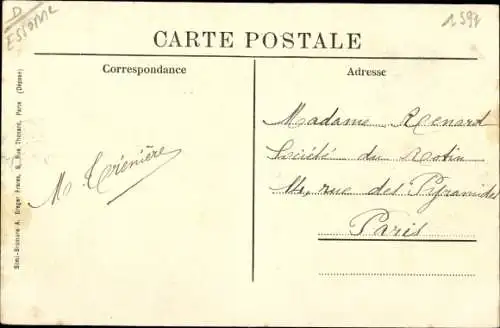 D
ESSONNE
CARTE POSTALE
Correspondance
Adresse
Simi-Bromure A. Breger Frères, 9, Rue Thénard, Paris (Déposé)
Madame Renard
Société du
rue des Pyramides
Paris
M.